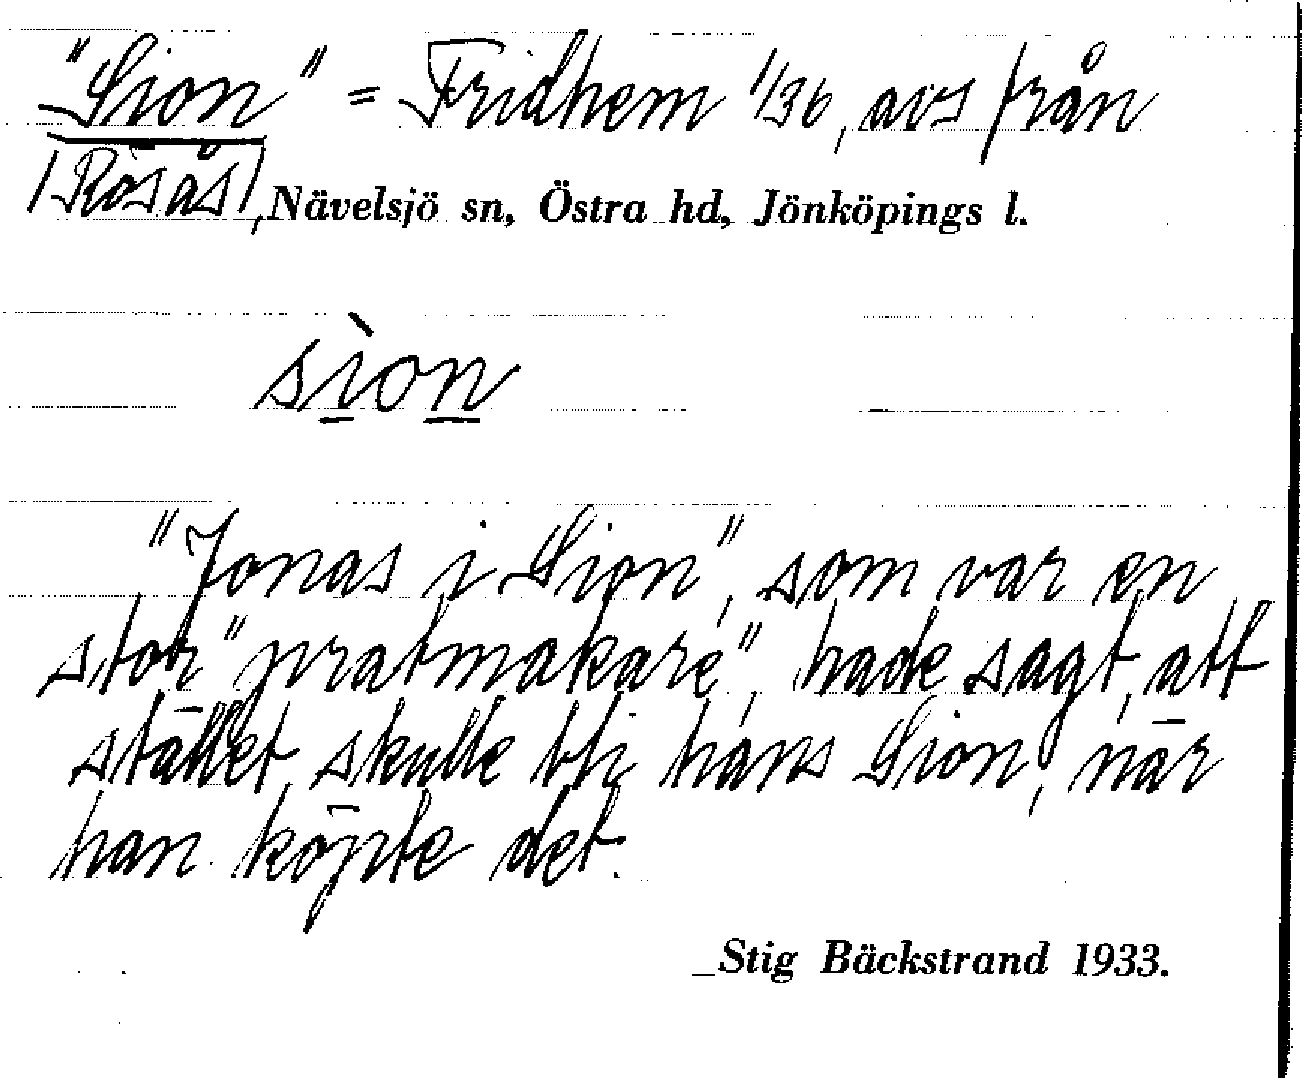 "Sion" = Fridhem 1/36, avs från
/Rösås/, Nävelsjö sn, Östra hd, Jönköpings l.
sìon
"Jonas i Sion", som var en
stor "pratmakare", hade sagt, att
stället skulle bli hans Sion, när
han köpte det.
Stig Bäckstrand 1933.